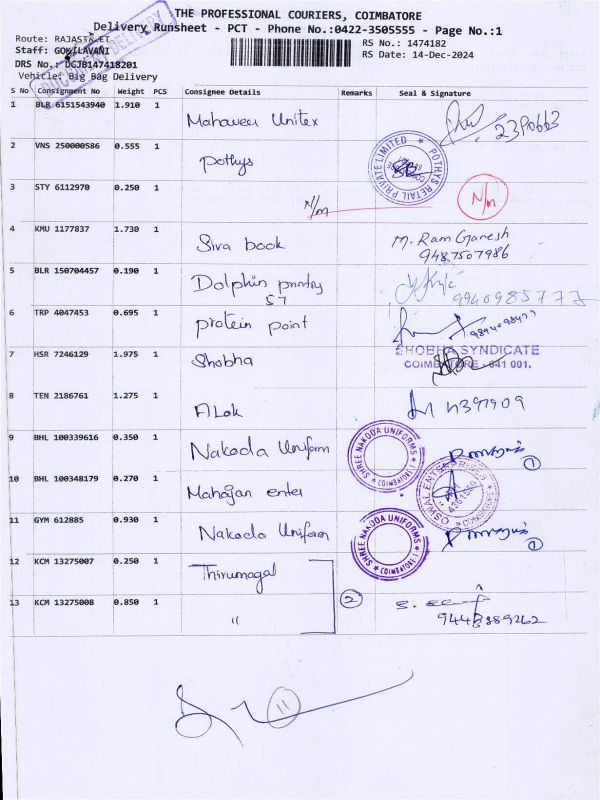 THE PROFESSIONAL COURIERS, COIMBATORE
Delivery Runsheet - PCT - Phone No.:0422-3505555 - Page No.:1
Route: RAJASTREET
RS No.: 1474182
Staff: GOKILAVANI
RS Date: 14-Dec-2024
DRS No.: DCJB147418201
Vehicle: Big Bag Delivery
DOCUMENT DELIVERY
S No Consignment No Weight PCS Consignee Details Remarks Seal & Signature
1 BLR 6151543940 1.910 1 Mahaveer Unitex
2 VNS 250000586 0.555 1 Pothys POTHYS RETAIL PRIVATE LIMITED
3 STY 6112970 0.250 1 N/m N/m
4 KMU 1177837 1.730 1 Siva book M. Ram Ganesh
9487507986
5 BLR 150704457 0.190 1 Dolphin printry
57 9940985773
6 TRP 4047453 0.695 1 protein point
7 HSR 7246129 1.975 1 Shobha SHOBHA SYNDICATE
COIMBATORE - 641 001.
8 TEN 2186761 1.275 1 Alok
9 BHL 100339616 0.350 1 Nakoda Uniform SHREE NAKODA UNIFORMS COIMBATORE-1 1
10 BHL 100348179 0.270 1 Mahajan enter OSWAL ENTERPRISES
11 GYM 612885 0.930 1 Nakoda Uniform SHREE NAKODA UNIFORMS COIMBATORE-1 1
12 KCM 13275007 0.250 1 Thirumagal
13 KCM 13275008 0.850 1 " 2
11